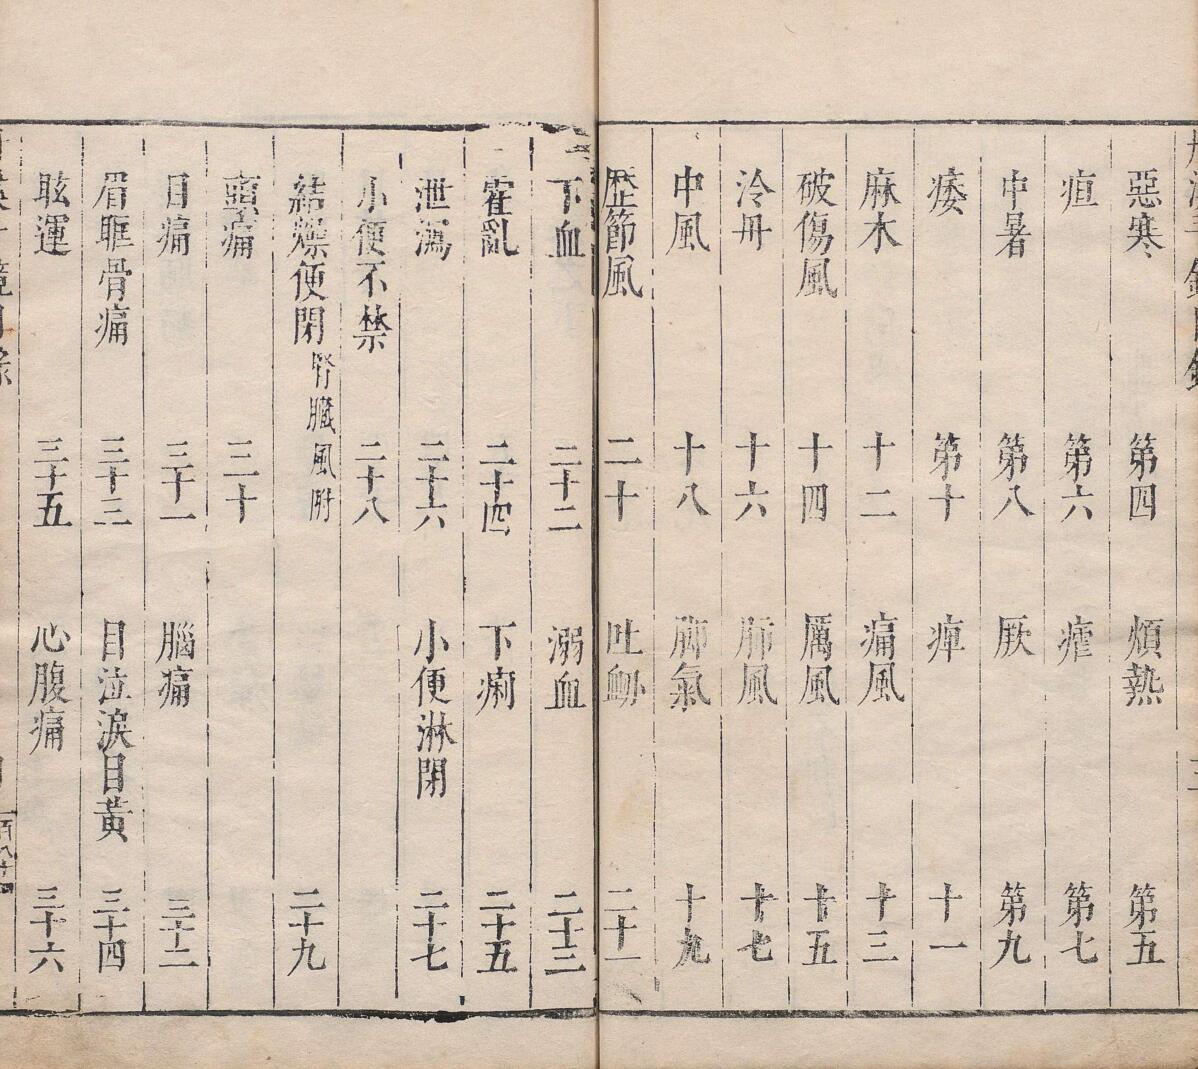 惡寒 第四 煩熱 第五
疸 第六 瘧 第七
中暑 第八 厥 第九
痿 第十 痺 十一
麻木 十二 痛風 十三
破傷風 十四 厲風 十五
泠丹 十六 肺風 十七
中風 十八 腳氣 十九
歷節風 二十 吐衄 二十一
下血 二十二 溺血 二十三
霍亂 二十四 下痢 二十五
泄瀉 二十六 小便淋閉 二十七
小便不禁 二十八
結燥便閉 腎臟風附 二十九
頭痛 三十
目痛 三十一 腦痛 三十二
眉眶骨痛 三十三 目泣淚目黃 三十四
眩運 三十五 心腹痛 三十六